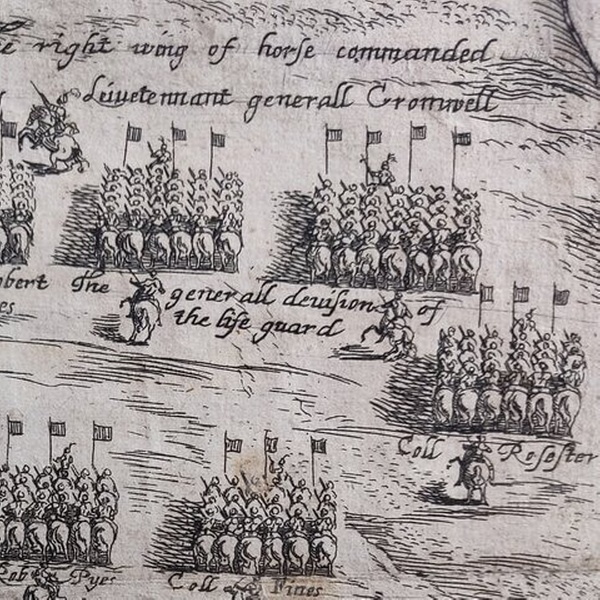 e right wing of horſe commanded
Leiuetennant generall Cromwell
obert The generall deuiſion of
es the life guard
Coll Roſeſter
Rob Pyes
Coll Fines